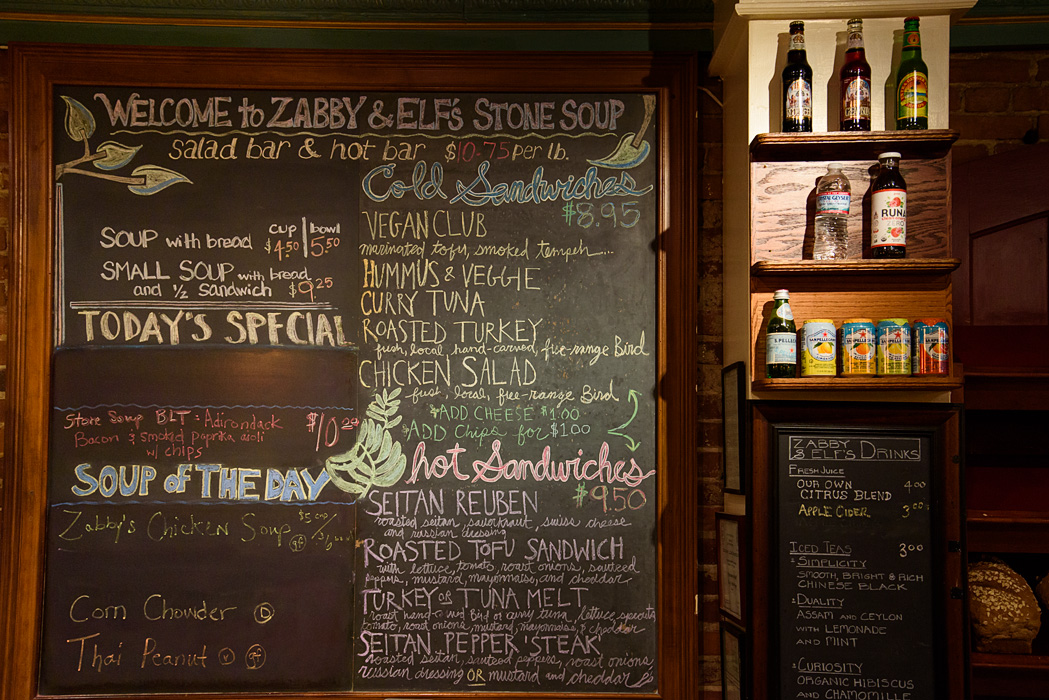 WELCOME to ZABBY & ELF'S STONE SOUP
salad bar & hot bar $10.75 per lb.
SOUP with bread cup $4.50 | bowl 5.50
SMALL SOUP with bread
and ½ sandwich $9.25
TODAY'S SPECIAL
Stone Soup BLT: Adirondack
Bacon & smoked paprika aioli
w/ chips
SOUP of THE DAY
Zabby's Chicken Soup gf
Corn Chowder D
Thai Peanut V gf
Cold Sandwiches
$8.95
VEGAN CLUB
marinated tofu, smoked tempeh...
HUMMUS & VEGGIE
CURRY TUNA
ROASTED TURKEY
fresh, local, hand-carved, free-range Bird
CHICKEN SALAD
fresh, local, free-range Bird
ADD CHEESE $1.00
ADD Chips for $1.00
hot Sandwiches
$9.50
SEITAN REUBEN
roasted seitan, sauerkraut, swiss cheese
and russian dressing
ROASTED TOFU SANDWICH
with lettuce, tomato, roast onions, sauteed
peppers, mustard, mayonnaise, and cheddar
TURKEY or TUNA MELT
roast hand-carved Bird or curry tuna, lettuce, sprouts
tomato, roast onions, mustard, mayonnaise, & cheddar
SEITAN PEPPER 'STEAK'
roasted seitan, sauteed peppers, roast onions
russian dressing OR mustard and cheddar
CRYSTAL GEYSER
RUNA
S.PELLEGRINO
SANPELLEGRINO
SANPELLEGRINO
SANPELLEGRINO
SANPELLEGRINO
ZABBY
& ELF'S DRINKS
FRESH JUICE
OUR OWN
CITRUS BLEND 4.00
APPLE CIDER 3.00
ICED TEAS 3.00
SIMPLICITY
SMOOTH, BRIGHT & RICH
CHINESE BLACK
DUALITY
ASSAM AND CEYLON
WITH LEMONADE
AND MINT
CURIOSITY
ORGANIC HIBISCUS
AND CHAMOMILLE